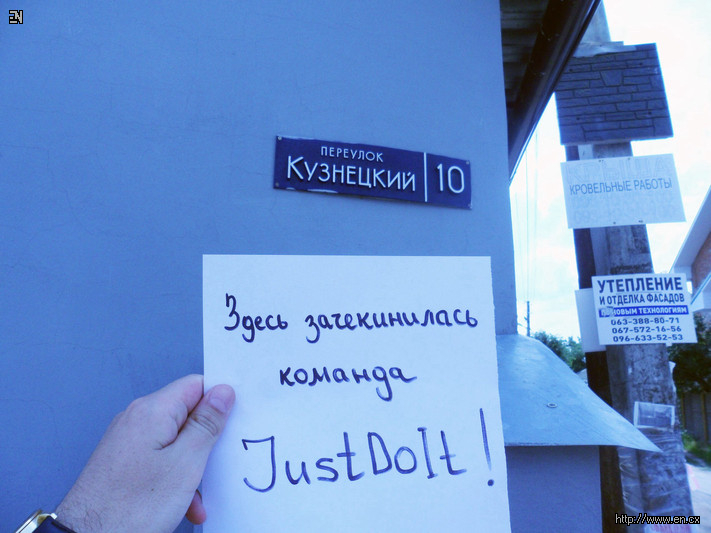 EN
ПЕРЕУЛОК
КУЗНЕЦКИЙ 10
КРОВЕЛЬНЫЕ РАБОТЫ
УТЕПЛЕНИЕ
И ОТДЕЛКА ФАСАДОВ
НОВЫМ ТЕХНОЛОГИЯМ
063-388-80-71
067-572-16-56
096-633-52-53
Здесь зачекинилась
команда
JustDoIt!
http://www.en.cx